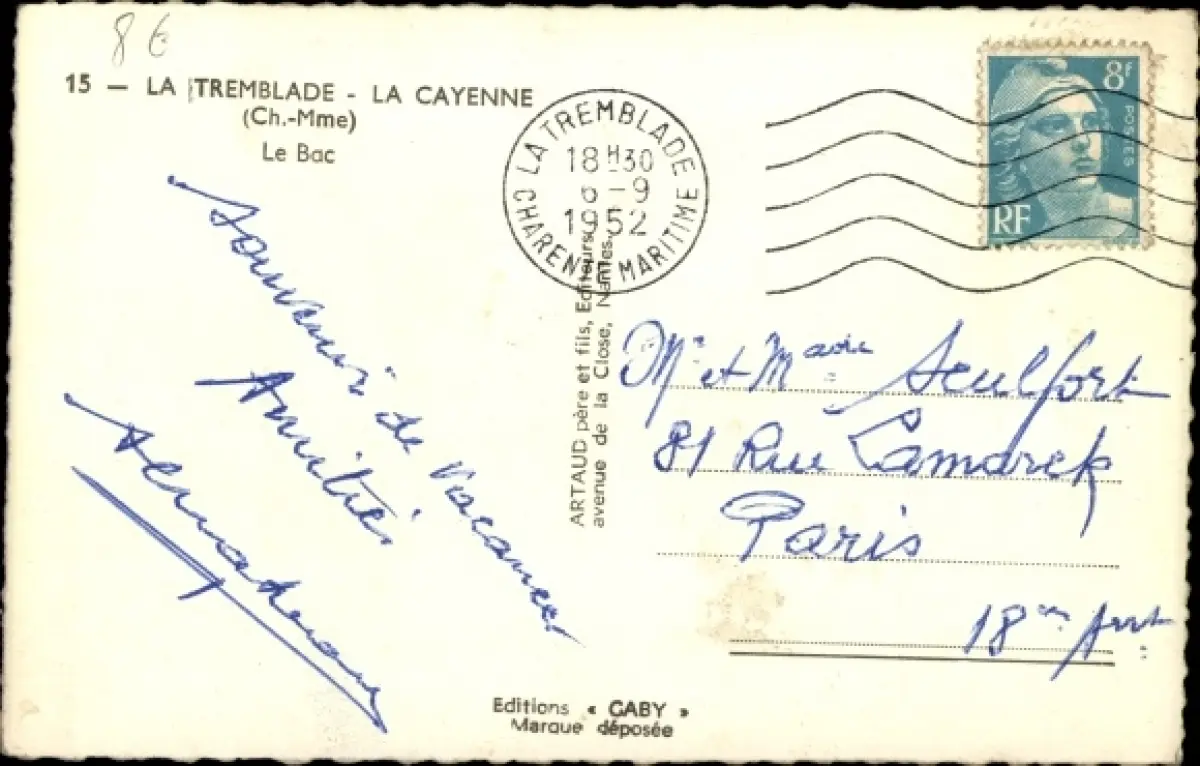 8 €
15 — LA TREMBLADE - LA CAYENNE
(Ch.-Mme)
Le Bac
LA TREMBLADE
18H30
6-9
1952
CHARENTE MARITIME
8f
POSTES
RF
Souvenir de Vacances
Amitiés
ARTAUD père et fils, Editeurs
avenue de la Close, Nantes.
Mr et Madme Seulfort
81 Rue Lamarck
Paris
18em Arrt
Editions « GABY »
Marque déposée